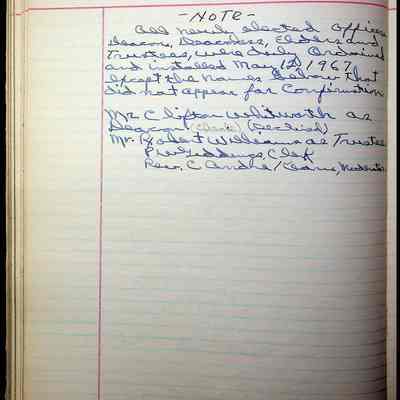 - NOTE -
All newly elected Officers
Deacons, Deaconess, Elders and
Trustees, were duly Ordained
and installed May 12, 1967
except the names below that
did not appear for Confirmation
Mr. Clifton Whitworth as
Deacon (Declined)
Mr. Robert Williams as Trustee
P. W. Giddings, Clerk
Rev. C. Andre Kearns, Moderator